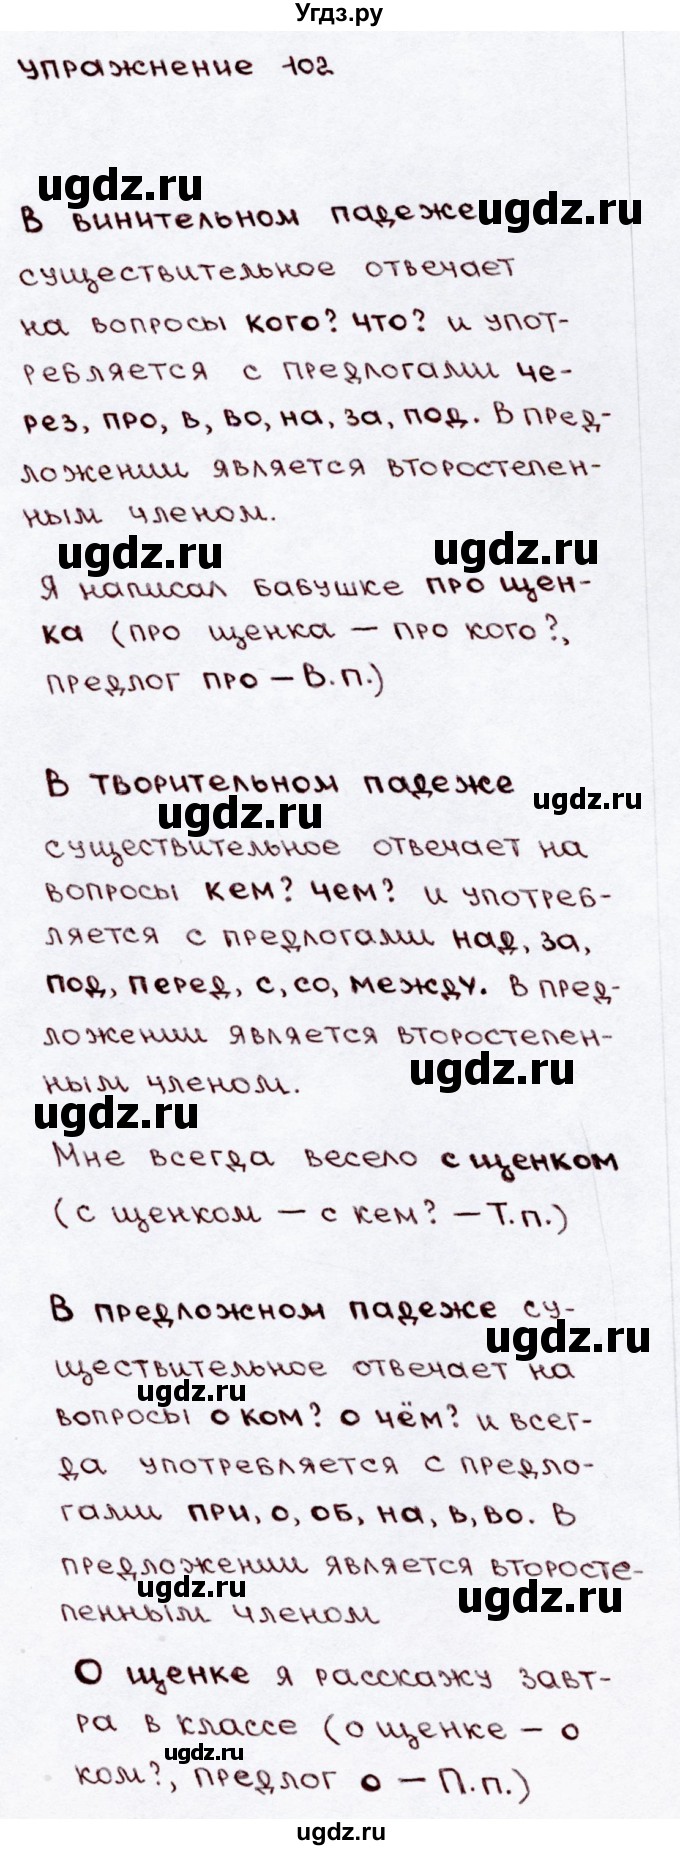 Угдз.ру
упражнение 102
ugdz.ru
В винительном падеже ugdz.ru
существительное отвечает
на вопросы кого? что? и упот-
ребляется с предлогами че-
рез, про, в, во, на, за, под. В пред-
ложении является второстепен-
ным членом.
ugdz.ru ugdz.ru
Я написал бабушке про щен-
ка (про щенка – про кого?,
предлог про – В.п.)
В творительном падеже
ugdz.ru ugdz.ru
существительное отвечает на
вопросы кем? чем? и употреб-
ляется с предлогами над, за,
под, перед, с, со, между. В пред-
ложении является второстепен-
ным членом. ugdz.ru
ugdz.ru
Мне всегда весело с щенком
(с щенком – с кем? – Т.п.)
В предложном падеже су-
ugdz.ru
ществительное отвечает на
ugdz.ru
вопросы о ком? о чём? и всег-
да употребляется с предло-
гами при, о, об, на, в, во. В
предложении является второсте-
ugdz.ru ugdz.ru
пенным членом
О щенке я расскажу завт-
ра в классе (о щенке – о
ugdz.ru
ком?, предлог о – П.п.)
ugdz.ru